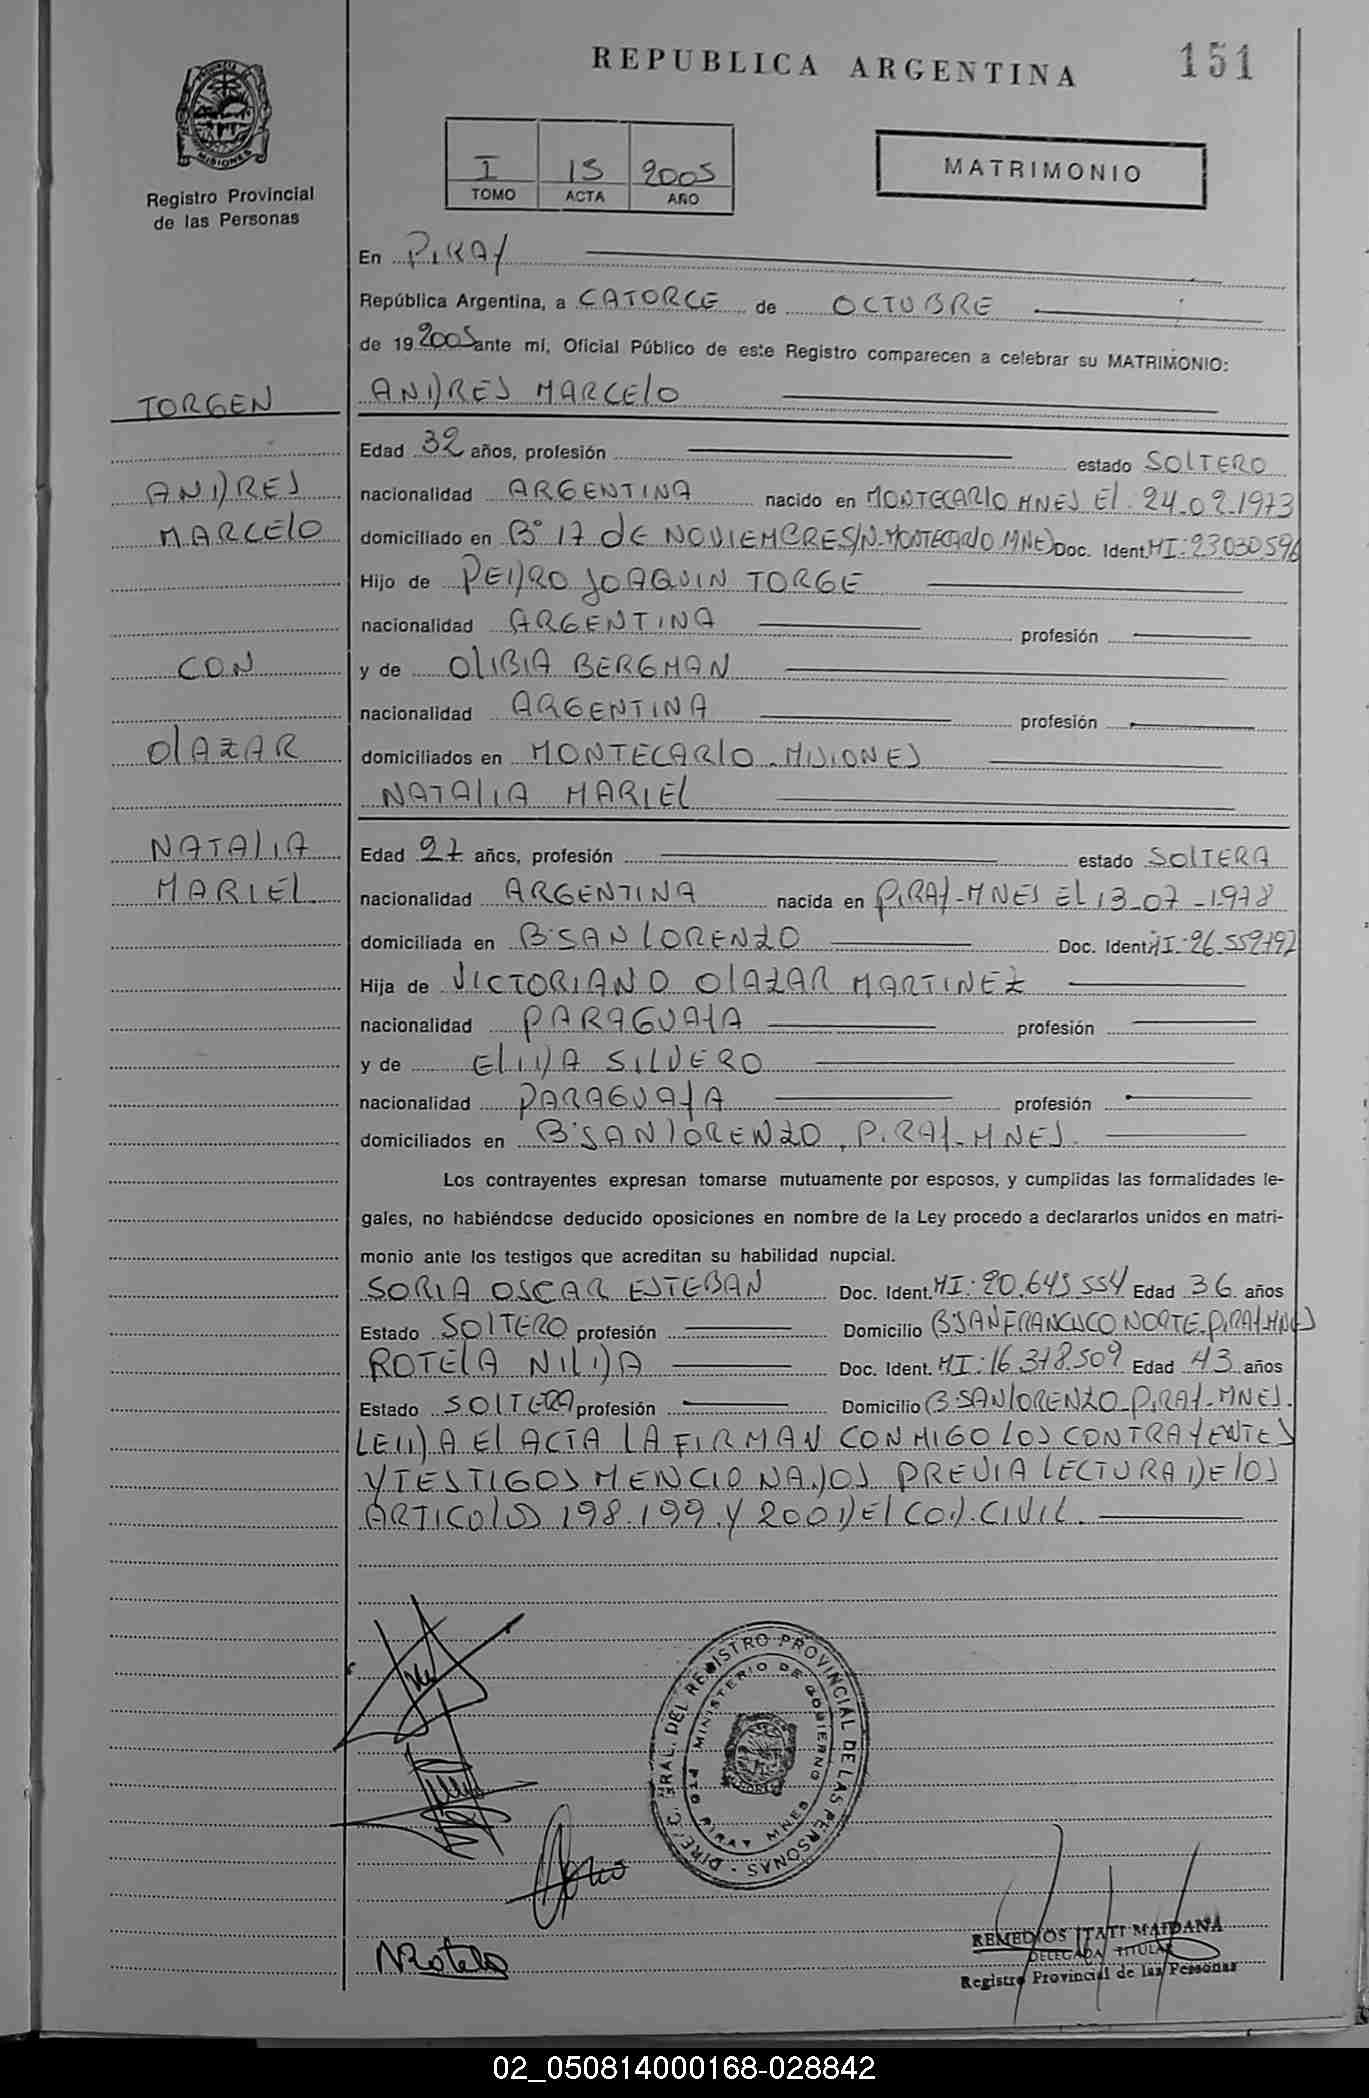 REPUBLICA ARGENTINA
151
MISIONES
Registro Provincial
de las Personas
I 15 2005
TOMO ACTA AÑO
MATRIMONIO
En PIRAY
República Argentina, a CATORCE de OCTUBRE
de 19 2005 ante mí, Oficial Público de este Registro comparecen a celebrar su MATRIMONIO:
TORGEN
ANDRES MARCELO
Edad 32 años, profesión estado SOLTERO
ANDRES
nacionalidad ARGENTINA nacido en MONTECARLO MNES El. 24-02-1973
MARCELO
domiciliado en Bº 17 de NOVIEMBRE S/N-MONTECARLO MNES Doc. Ident. MI: 23030596
Hijo de PEDRO JOAQUIN TORGE
nacionalidad ARGENTINA profesión
CON
y de OLIBIA BERGMAN
nacionalidad ARGENTINA profesión
OLAZAR
domiciliados en MONTECARLO - MISIONES
NATALIA MARIEL
NATALIA
Edad 27 años, profesión estado SOLTERA
MARIEL
nacionalidad ARGENTINA nacida en PIRAY-MNES EL 13-07-1978
domiciliada en B:SAN LORENZO Doc. Ident. MI.-26.552792
Hija de VICTORIANO OLAZAR MARTINEZ
nacionalidad PARAGUAYA profesión
y de ELIDA SILVERO
nacionalidad PARAGUAYA profesión
domiciliados en B:SAN LORENZO, PIRAY-MNES.
Los contrayentes expresan tomarse mutuamente por esposos, y cumplidas las formalidades le-
gales, no habiéndose deducido oposiciones en nombre de la Ley procedo a declararlos unidos en matri-
monio ante los testigos que acreditan su habilidad nupcial.
SORIA OSCAR ESTEBAN Doc. Ident. MI: 20.645.554 Edad 36 años
Estado SOLTERO profesión Domicilio B:SAN FRANCISCO NORTE-PIRAY-MNES
ROTELA NILDA Doc. Ident. MI: 16.378.509 Edad 43 años
Estado SOLTERA profesión Domicilio B:SAN LORENZO-PIRAY-MNES.
LEIDA El ACTA LA FIRMAN CONMIGO LOS CONTRAYENTES
Y TESTIGOS MENCIONADOS PREVIA LECTURA DE LOS
ARTICOLOS 198.199.Y 200 DEl COD.CIVIL.
DIREC. GRAL. DEL REGISTRO PROVINCIAL DE LAS PERSONAS
MINISTERIO DE GOBIERNO
PTO PIRAY MNES
NRotela
REMEDIOS ITATI MAIDANA
DELEGADA TITULAR
Registro Provincial de las Personas
02_050814000168-028842